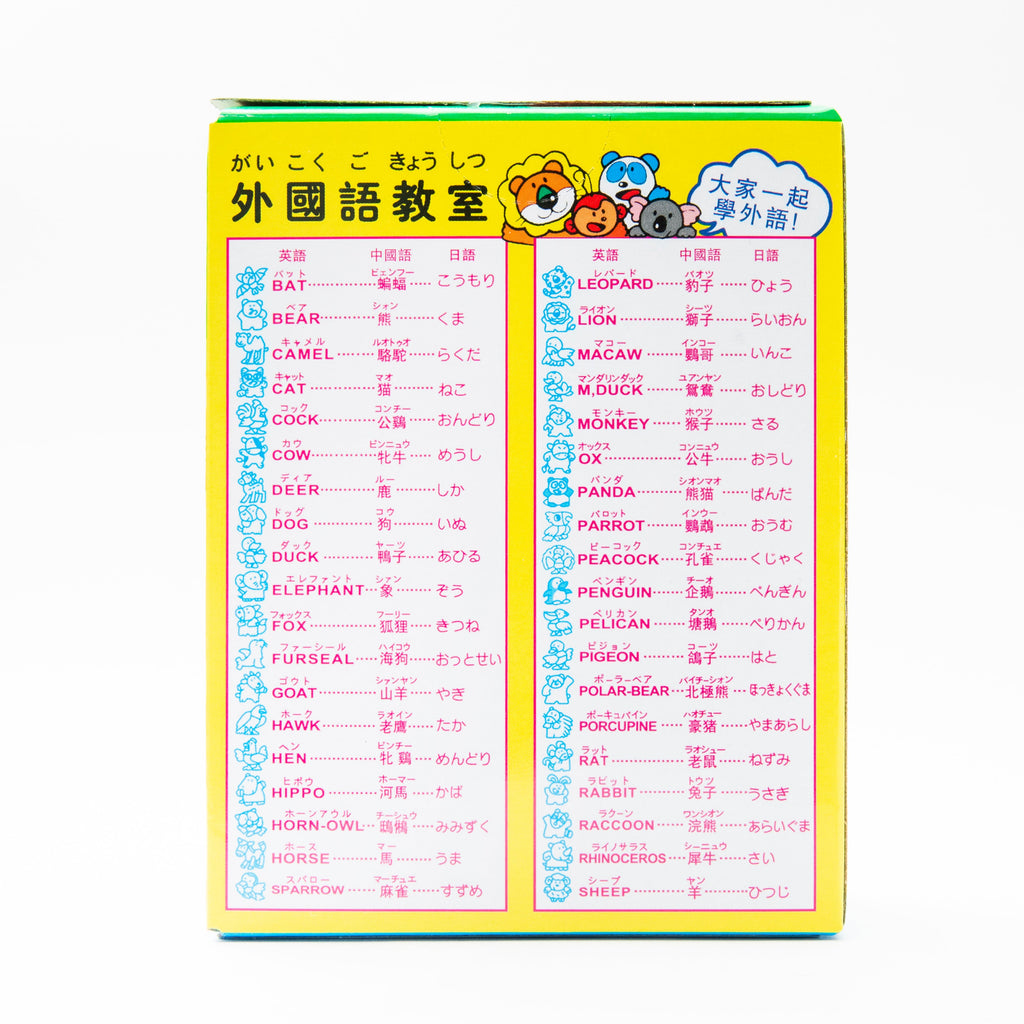 がい こく ご きょう しつ
外國語教室
大家一起
學外語!
英語 中國語 日語
バット ビェンフー
BAT 蝙蝠 こうもり
ベア ション
BEAR 熊 くま
キャメル ルオトゥオ
CAMEL 駱駝 らくだ
キャット マオ
CAT 猫 ねこ
コック コンチー
COCK 公鷄 おんどり
カウ ピンニュウ
COW 牝牛 めうし
ディア ルー
DEER 鹿 しか
ドッグ コウ
DOG 狗 いぬ
ダック ヤーツ
DUCK 鴨子 あひる
エレファント シァン
ELEPHANT 象 ぞう
フォックス フーリー
FOX 狐狸 きつね
ファーシール ハイコウ
FURSEAL 海狗 おっとせい
ゴウト シァンヤン
GOAT 山羊 やぎ
ホーク ラオイン
HAWK 老鷹 たか
ヘン ピンチー
HEN 牝鷄 めんどり
ヒポウ ホーマー
HIPPO 河馬 かば
ホーンアウル チーシュウ
HORN-OWL 鴟鵂 みみずく
ホース マー
HORSE 馬 うま
スパロー マーチュエ
SPARROW 麻雀 すずめ
英語 中國語 日語
レパード パオツ
LEOPARD 豹子 ひょう
ライオン シーツ
LION 獅子 らいおん
マコー インコー
MACAW 鸚哥 いんこ
マンダリンダック ユアンヤン
M,DUCK 鴛鴦 おしどり
モンキー ホウツ
MONKEY 猴子 さる
オックス コンニュウ
OX 公牛 おうし
パンダ シオンマオ
PANDA 熊猫 ぱんだ
パロット インウー
PARROT 鸚鵡 おうむ
ピーコック コンチュエ
PEACOCK 孔雀 くじゃく
ペンギン チーオ
PENGUIN 企鵝 ぺんぎん
ペリカン タンオ
PELICAN 塘鵝 ぺりかん
ピジョン コーツ
PIGEON 鴿子 はと
ポーラーベア パイチーシィオン
POLAR-BEAR 北極熊 ほっきょくぐま
ポーキュパイン ハオチュー
PORCUPINE 豪猪 やまあらし
ラット ラオシュー
RAT 老鼠 ねずみ
ラビット トウツ
RABBIT 兔子 うさぎ
ラクーン ワンシオン
RACCOON 浣熊 あらいぐま
ライノサラス シーニュウ
RHINOCEROS 犀牛 さい
シープ ヤン
SHEEP 羊 ひつじ